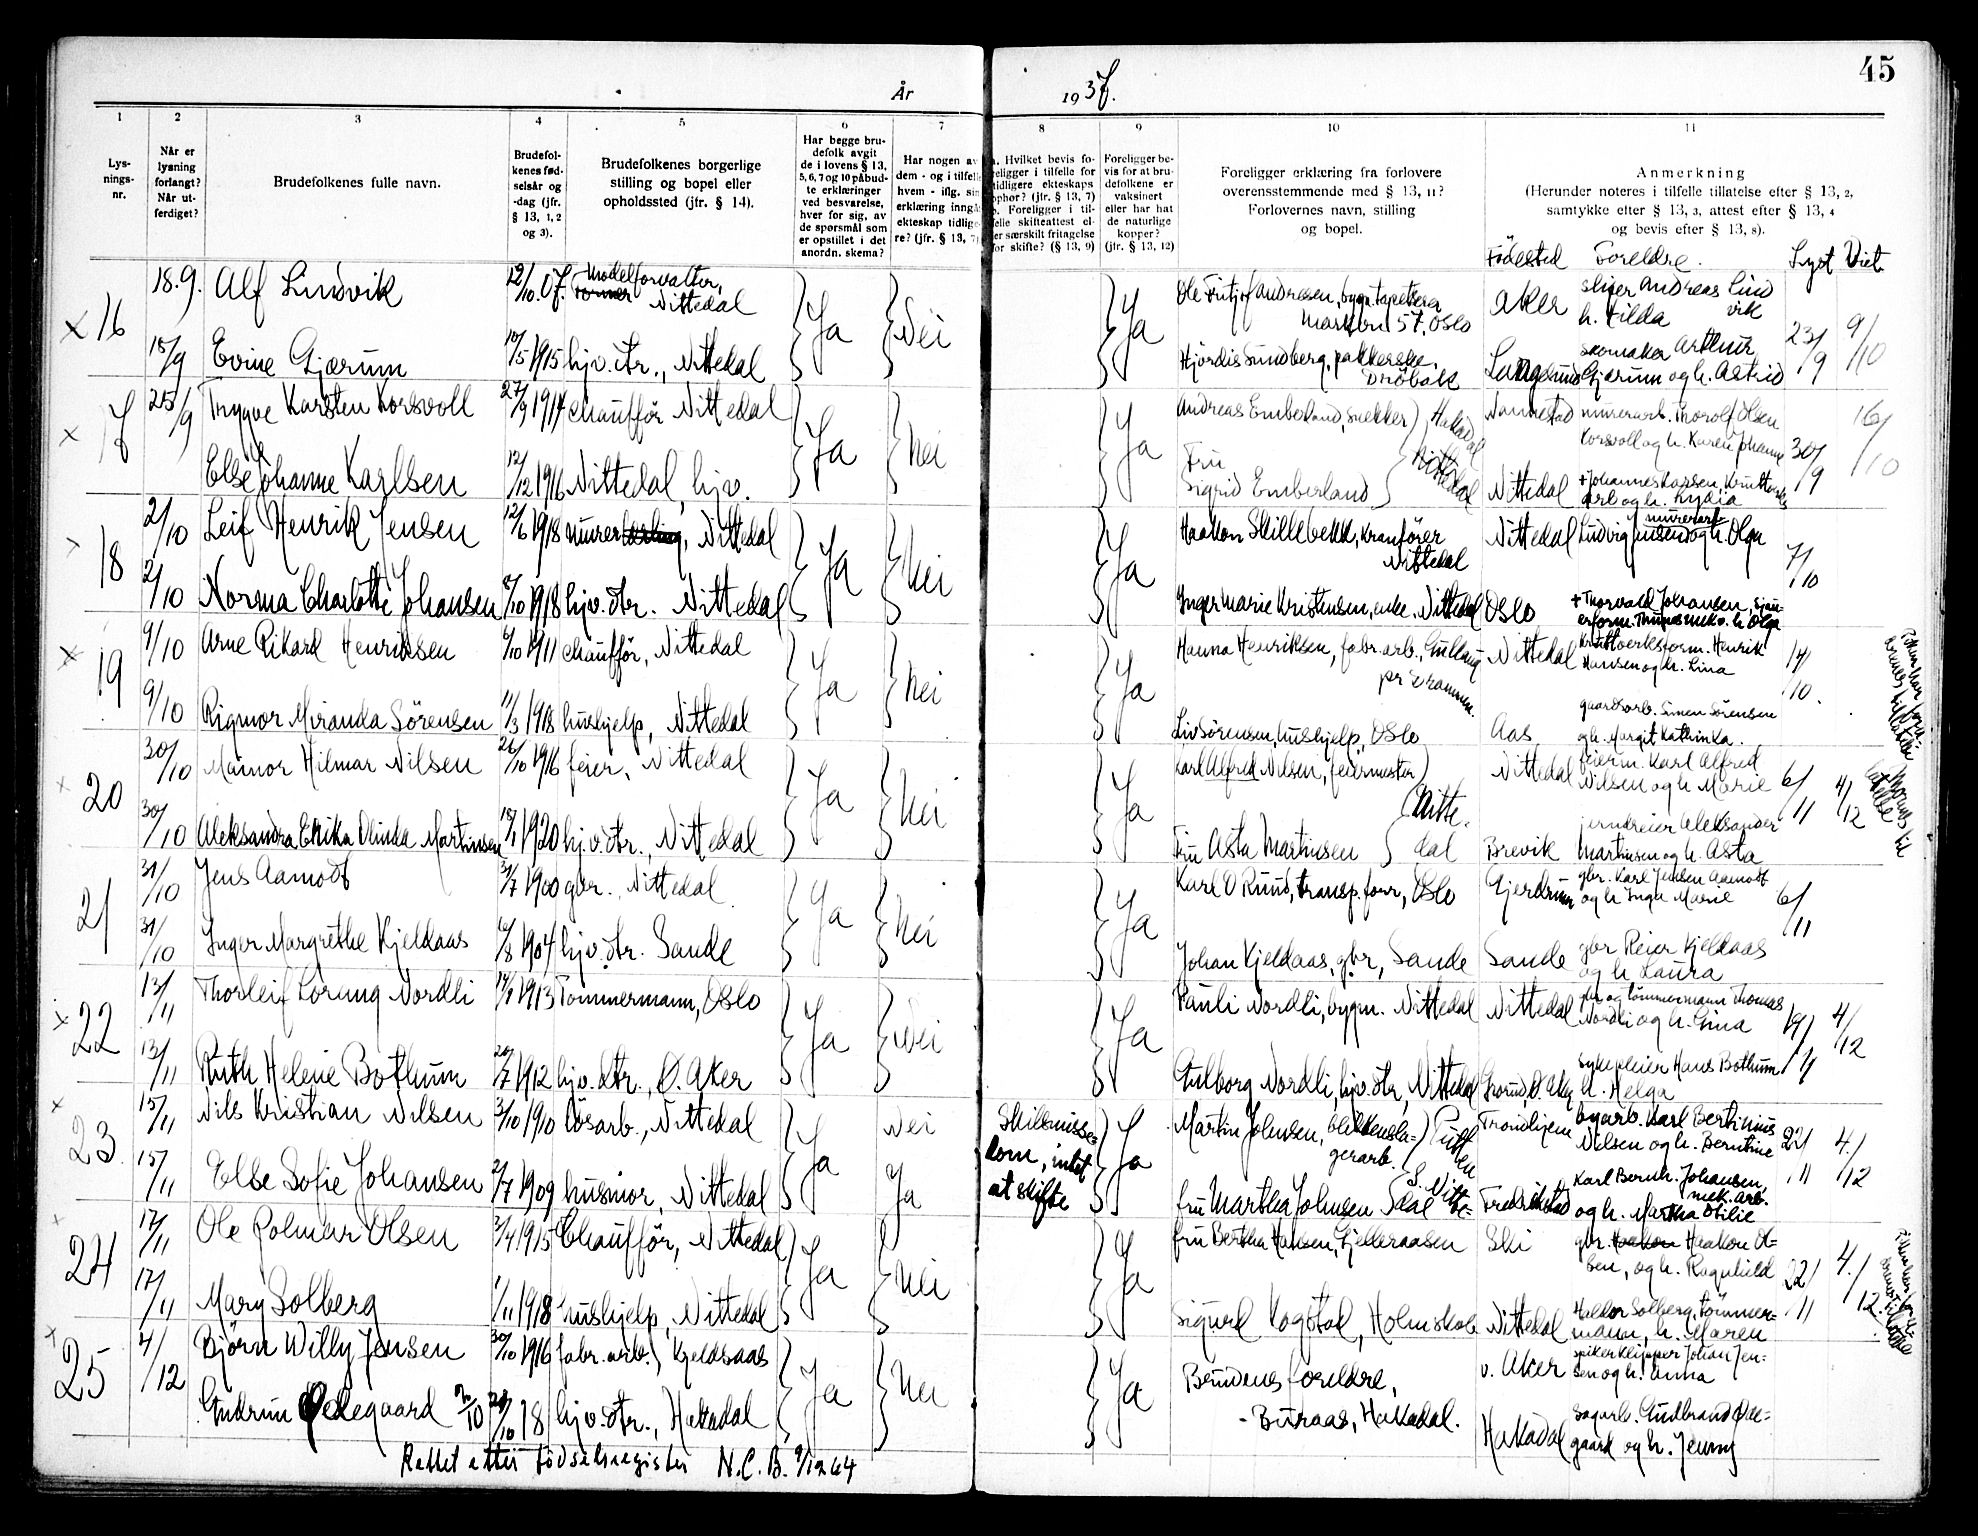 45
År 1937.
1 2 3 4 5 6 7 8 9 10 11
Lys-
nings-
nr.
Når er
lysning
forlangt?
Når ut-
ferdiget?
Brudefolkenes fulle navn.
Brudefol-
kenes fød-
selsår og
-dag (jfr.
§ 13, 1, 2
og 3).
Brudefolkenes borgerlige
stilling og bopel eller
opholdssted (jfr. § 14).
Har begge bru-
defolk avgit
de i lovens § 13,
5, 6, 7 og 10 påbud-
te erklæringer
ved besvarelse,
hver for sig, av
de spørsmål som
er opstillet i det
anordn. skema?
Har nogen av
dem - og i tilfelle
hvem - iflg. sin
erklæring inngå
ekteskap tidlige
re? (jfr. § 13, 7)
a. Hvilket bevis fo-
religger i tilfelle for
tidligere ekteskaps
ophør? (jfr. § 13, 7)
b. Foreligger i til-
felle skifteattest el-
ler særskilt fritagelse
for skifte? (§ 13, 9)
Foreligger be-
vis for at bru-
defolkene er
vaksinert
eller har hat
de naturlige
kopper?
(jfr. § 13, 12)
Foreligger erklæring fra forlovere
overensstemmende med § 13, 11?
Forlovernes navn, stilling
og bopel.
Anmerkning
(Herunder noteres i tilfelle tillatelse efter § 13, 2,
samtykke efter § 13, 3, attest efter § 13, 4
og bevis efter § 13, 8).
Födested Foreldre. Lyst Viet
x 16 18.9. Alf Lindvik 12/10.07. Modelforvalter, Nittedal Ja Nei Ja
Ole Fritjof Andresen, tapetserer Markvn 57, Oslo
Aker sliper Andreas Lindvik h. Hilda 23/9 9/10
18/9 Evine Gjærum 10/5 1915 hjv. dtr., Nittedal
Hjördis Sundberg, pakkerske, Dröbak
Langesund skomaker Arthur Gjærum og h. Astrid
x 17 25/9 Trygve Karsten Korsvoll 27/9 1914 chaufför Nittedal Ja Nei Ja
Andreas Emberland, snekker Hakadal
Nannestad murerarb. Thorolf Olsen Korsvoll og h. Karen Johanne 30/9 16/10
Else Johanne Karlsen 12/12 1916 Nittedal, hjv.
Fru Sigrid Emberland Nittedal
Nittedal + Johannes Karlsen, Kruttverks arb og h. Lydia
18 2/10 Leif Henrik Jensen 12/6 1918 murer, Nittedal Ja Nei Ja
Haakon Skillebekk, kranförer Nittedal
Nittedal murerarb. Ludvig Jensen og h. Olga 7/10
2/10 Norma Charlotte Johansen 1918 hjv. dtr. Nittedal
Inger Marie Kristensen, enke, Nittedal
Oslo + Thorvald Johansen, h Olga
x 19 9/10 Arne Rikard Henriksen 1911 chaufför, Nittedal Ja Nei Ja
Hanna Henriksen, fabr. arb., Gullaug pr Drammen.
Nittedal Kruttverksform. Henrik Hansen og h. Lina 14/10.
9/10 Rigmor Miranda Sörensen 11/3 1918 hushjelp, Nittedal
Liv Sörensen, hushjelp, Oslo
Aas gaardsarb. Simen Sörensen og h. Margit Kathinka.
20 30/10 Mainor Hilmar Nilsen 26/10 1916 feier, Nittedal Ja Nei Ja
Karl Alfred Nilsen, feiermester Nittedal
Nittedal feierm. Karl Alfred Nilsen og h Marie 6/11 4/12
30/10 Aleksandra Erika Olinda Martinsen 18/1 1920 hj.v. dtr., Nittedal
Fru Asta Martinsen
Brevik Aleksander Martinsen og h. Asta
21 31/10 Jens Aamodt 31/7 1900 gbr. Nittedal Ja Nei Ja
Karl O Rund, transp. forr, Oslo
Gjerdrum gbr. Karl Jensen Aamodt og h Inga Marie 6/11
31/10 Inger Margrethe Kjeldaas 1904 hjv. dtr. Sande
Johan Kjeldaas, gbr, Sande
Sande gbr Reier Kjeldaas og h Laura
x 22 13/11 Thorleif Loreng Nordli 1913 Tömmermann, Oslo Ja Nei Ja
Pauli Nordli, bygm. Nittedal
Nittedal gbr og tömmermann Thomas Nordli og h. Lina 19/11 4/12
13/11 Ruth Helene Bothum 20/7 1912 hjv. dtr., Ö. Aker
Gulborg Nordli, hjv. dtr, Nittedal
Grorud Ö. Aker sykepleier Hans Bothum h. Helga
x 23 15/11 Nils Kristian Nilsen 3/10 1910 lösarb., Nittedal Ja Nei
Skilsmisse- dom, intet at skifte Ja
Martin Johnsen, blikkensla- gerarb.
Trondhjem byarb. Karl Bertinius Nilsen og h. Berntine 22/11 4./12
15/11 Else Sofie Johansen 2/7 1909 husmor, Nittedal Ja
fru Martha Johnsen S. Nitte- dal
Fredrikstad Karl Bernh. Johansen, mek. arb. og h. Martha Otilie
x 24 17/11 Ole Rolmar Olsen 3/4 1915 Chaufför, Nittedal Ja Nei Ja
fru Bertha Hansen, Fjelleraasen
Ski gbr. Haakon Ol- sen, og h. Ragnhild 22/11 4./12.
17/11 Mary Solberg 1/11 1918 hushjelp, Nittedal
Sigurd Kogstad, Holmskole
Nittedal Haldor Solberg, tömmer- mann, h. Maren
x 25 4/12 Björn Willy Jensen 30/10 1916 fabr. arb., Kjeldsaas Ja Nei Ja
Brudenes foreldre, - Buraas, Hakadal.
v. Aker spikerklipper Johan Jen- sen og h. Anna
Gudrun Ödegaard 18 hjv. dtr., Hakadal
Hakadal sagarb. Gudbrand Öde- gaard og h. Jenny
Rettet etter födselsregister N.C.B. 9/12 64